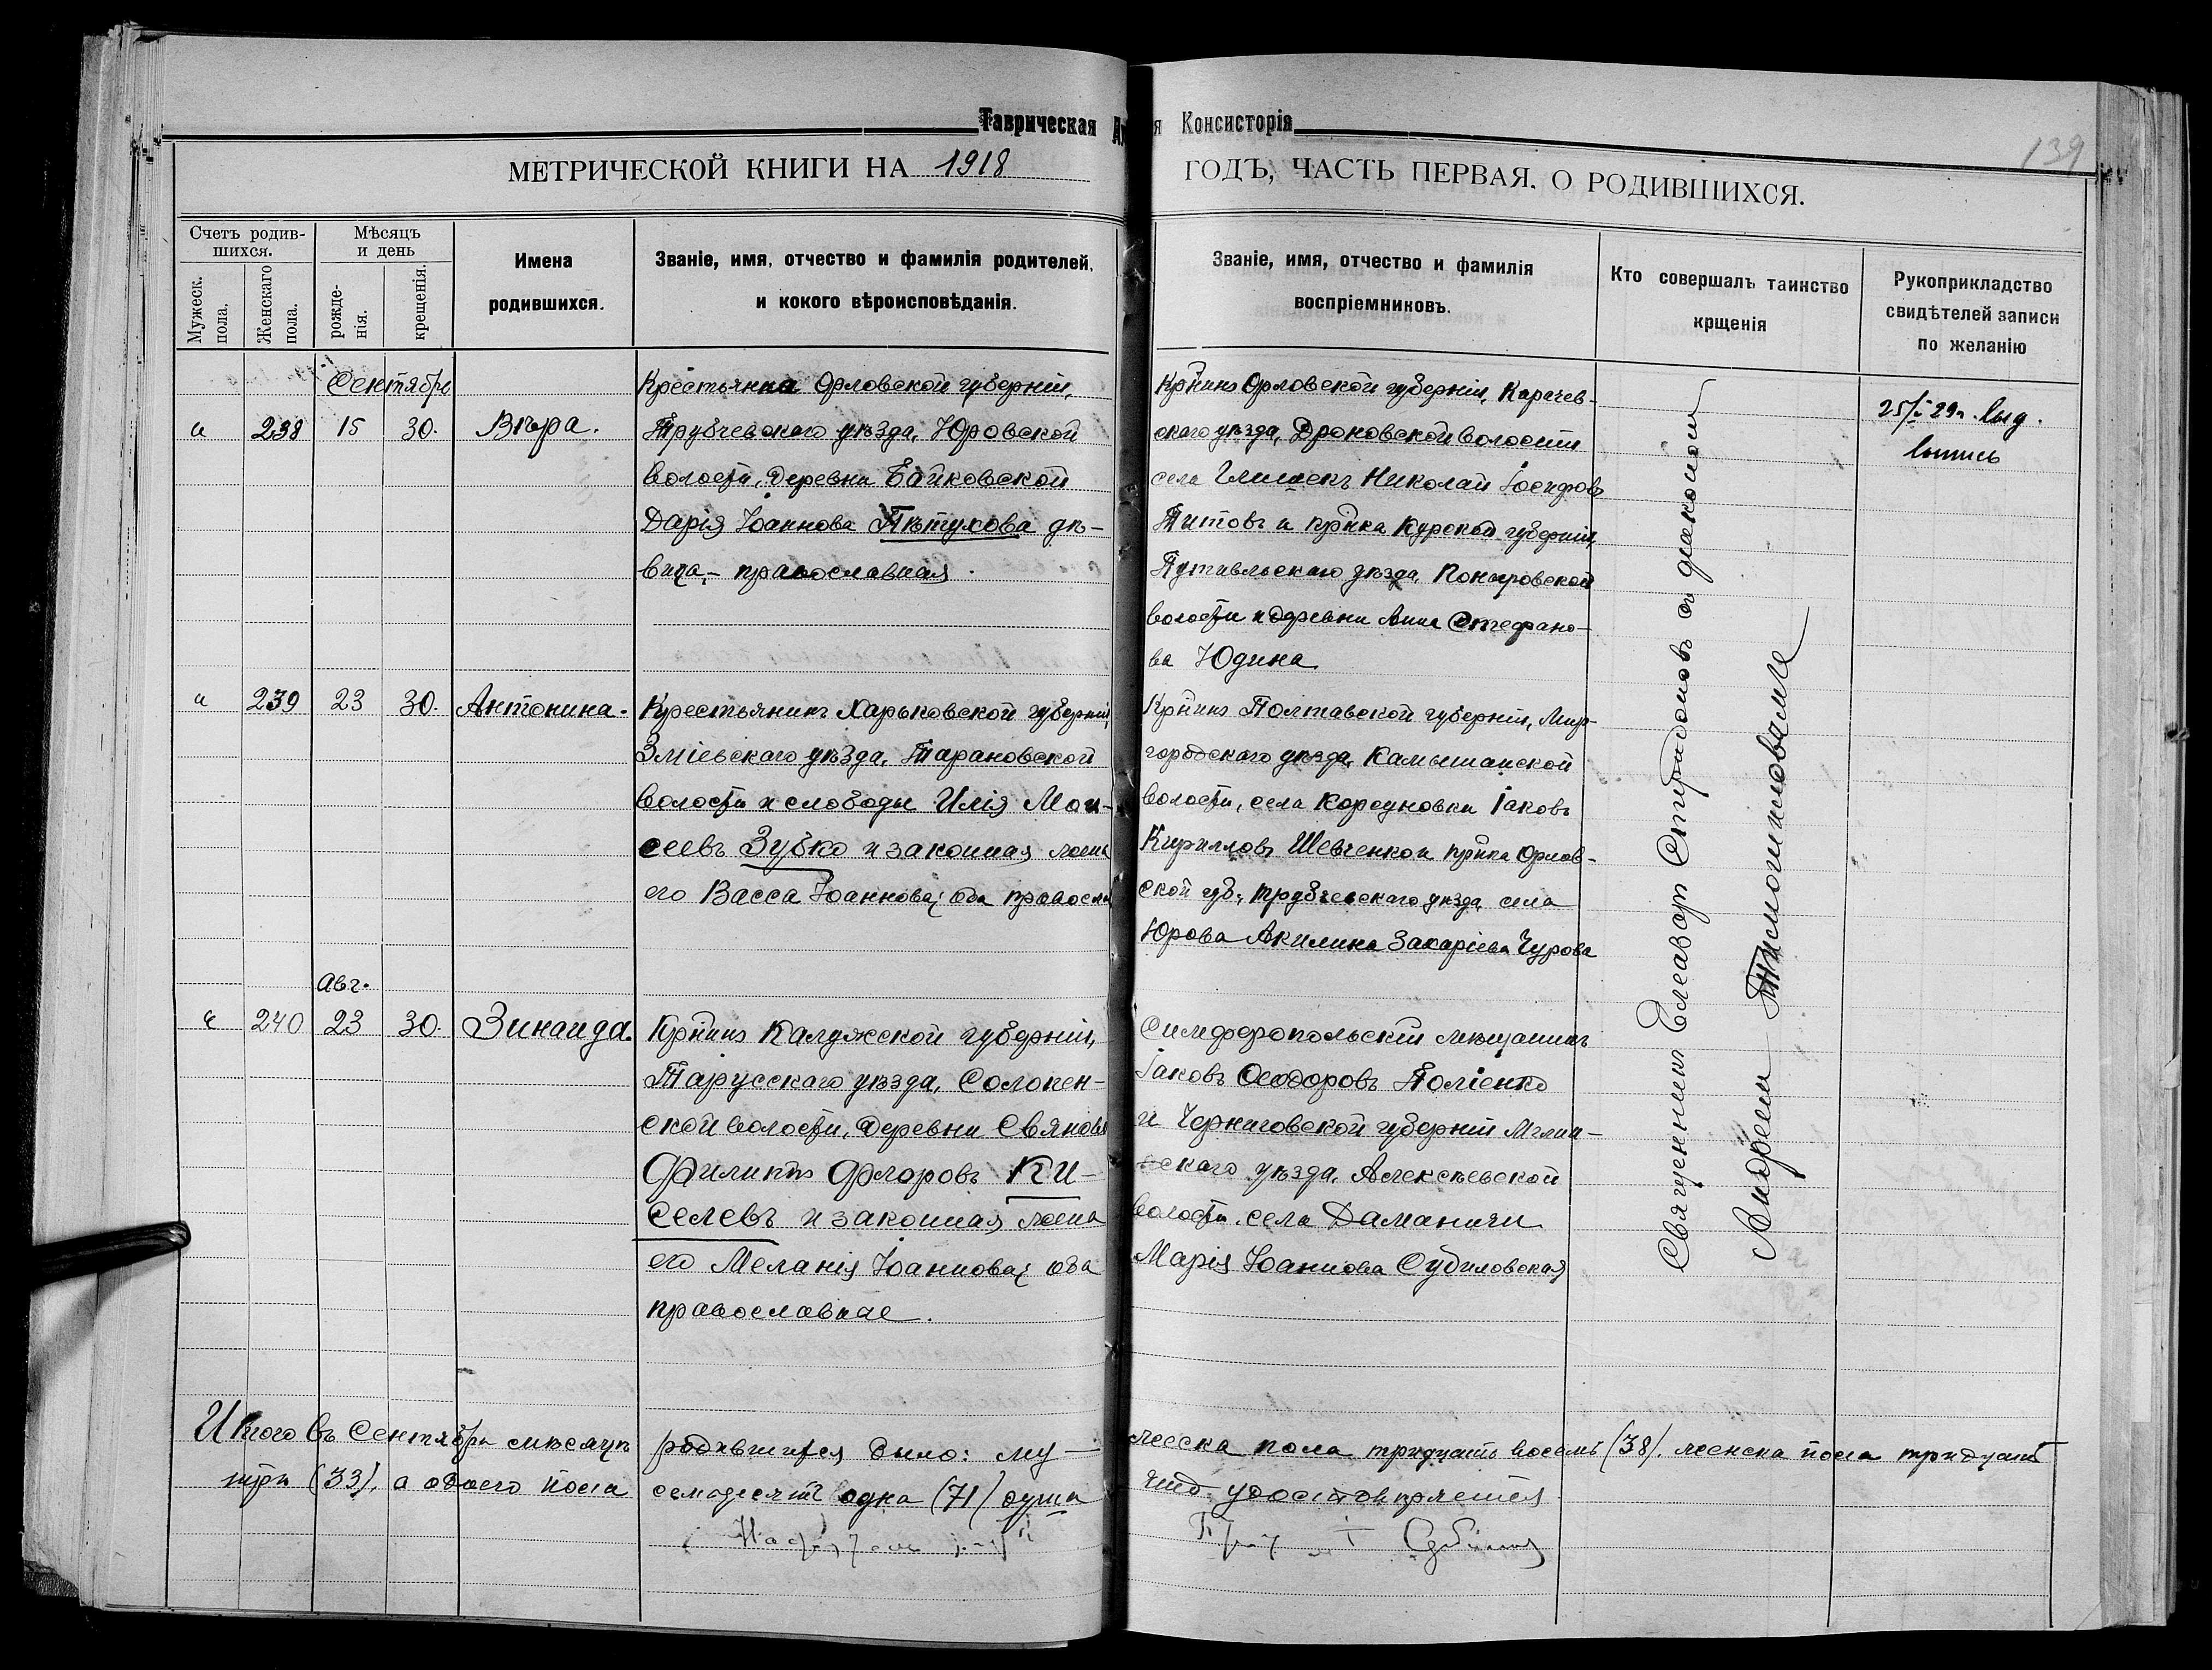 Таврическая
Консисторія
139
МЕТРИЧЕСКОЙ КНИГИ НА 1918
ГОДЪ, ЧАСТЬ ПЕРВАЯ. О РОДИВШИХСЯ.
Счетъ родив-
шихся.
Мужеск.
пола.
Женскаго
пола.
Мѣсяцъ
и день
рожде-
нія.
крещенія.
Имена
родившихся.
Званіе, имя, отчество и фамилія родителей,
и кокого вѣроисповѣданія.
Званіе, имя, отчество и фамилія
воспріемниковъ.
Кто совершалъ таинство
крщенія
Рукоприкладство
свидѣтелей записи
по желанію
Сентябрь
и 238 15 30. Вѣра.
Крестьянка Орловской губерніи,
Трубчевскаго уѣзда, Юровской
волости, деревни Байковской
Дарія Іоаннова Пѣтухова дѣ-
вица,- православная.
Крйинъ Орловской губерніи, Карачев-
скаго уѣзда, Дроновской волости
села Николай Іосифовъ
Титовъ и крйка Курской губерніи,
Путивльскаго уѣзда,
волости и деревни Анна Стефано-
ва Юдина
29г. выд.
и 239 23 30. Антонина.
Крестьянинъ Харьковской губерніи,
Зміевскаго уѣзда, Тарановской
волости и слободы Илія Мои-
сеевъ Зубко и законная жена
его Васса Іоаннова; оба правосла
Крйинъ Полтавской губерніи, Мир-
городскаго уѣзда, Камышанской
волости, села Корсуновки Іаковъ
Кирилловъ Шевченко и крйка Орлов-
ской губ., Трубчевскаго уѣзда, села
Юрова Акилина Захаріева Чурова
Авг.
и 240 23 30. Зинаида.
Крйинъ Калужской губерніи,
Тарусскаго уѣзда, Солопен-
ской волости, деревни
Филиппъ Флоровъ Ки-
селевъ и законная жена
его Меланія Іоаннова; оба
православные.
Симферопольскій мѣщанинъ
Іаковъ Ѳеодоровъ Поліенко
и Черниговской губерніи Мглин-
скаго уѣзда, Алексѣевской
волости, села Даманичи
Марія Іоаннова Судиловская
Священникъ Елеазар Спиридоновъ съ діакономъ
Андреем Тимошиновыме
Итого въ Сентябрѣ мѣсяцѣ родившихся было: му-
жеска пола тридцать восемь (38). женска пола тридцать
три (33), а обоего пола семьдесятъ одна (71) душа
удостовѣряется